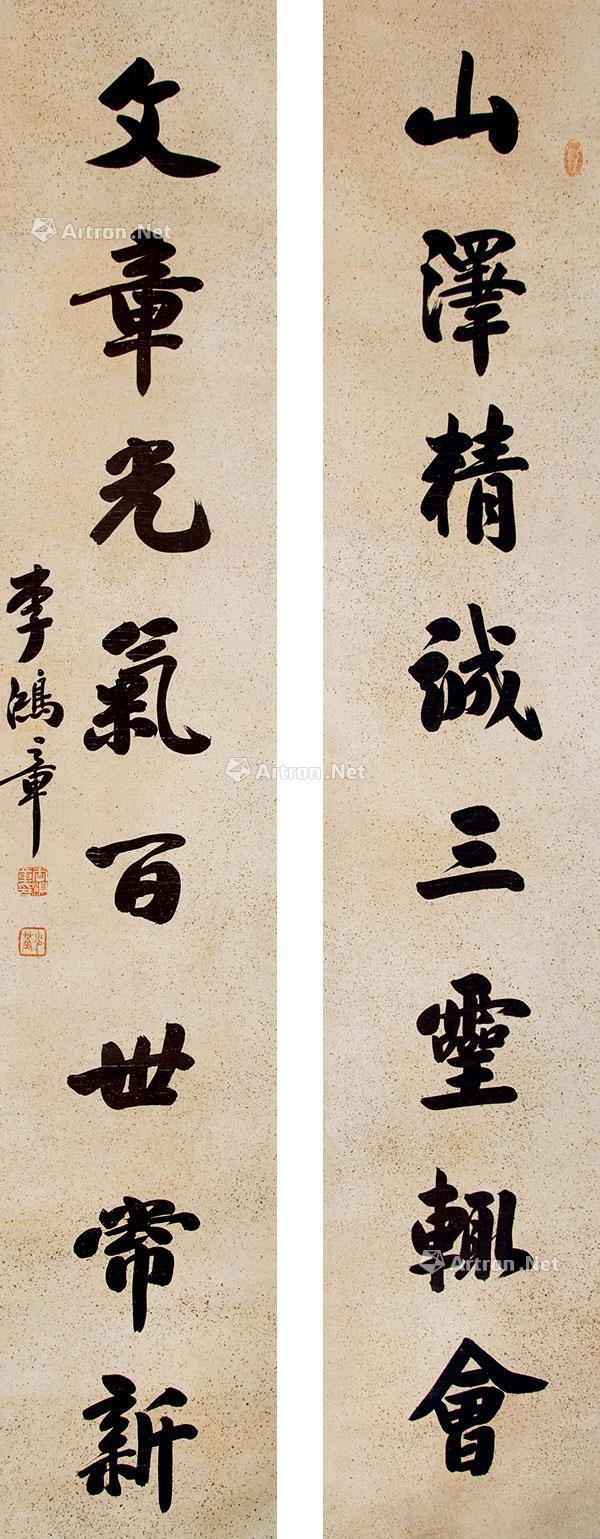 山澤精誠三靈輙會
文章光氣百世常新
李鴻章
Artron.Net
Artron.Net
Artron.Net